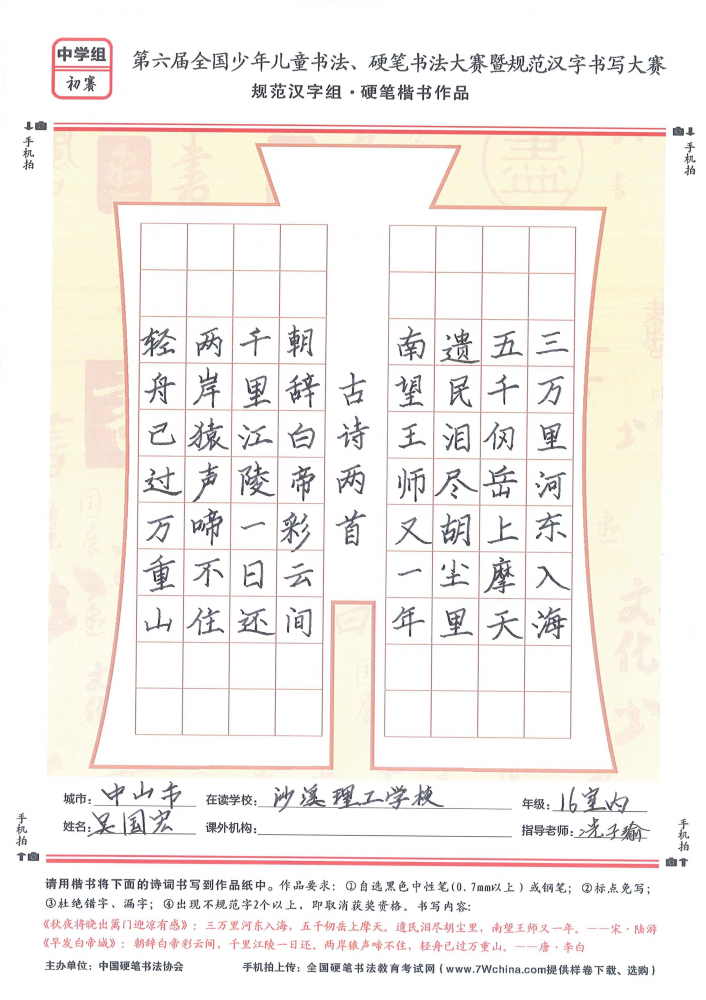 中学组
初赛
第六届全国少年儿童书法、硬笔书法大赛暨规范汉字书写大赛
规范汉字组·硬笔楷书作品
手机拍
手机拍
三万里河东入海
五千仞岳上摩天
遗民泪尽胡尘里
南望王师又一年
古诗两首
朝辞白帝彩云间
千里江陵一日还
两岸猿声啼不住
轻舟已过万重山
城市：中山市 在读学校：沙溪理工学校 年级：16室内
姓名：吴国宏 课外机构： 指导老师：冼子瑜
手机拍
手机拍
请用楷书将下面的诗词书写到作品纸中。作品要求：①自选黑色中性笔(0.7mm以上)或钢笔；②标点免写；
③杜绝错字、漏字；④出现不规范字2个以上，即取消获奖资格。书写内容：
《秋夜将晓出篱门迎凉有感》：三万里河东入海，五千仞岳上摩天。遗民泪尽胡尘里，南望王师又一年。——宋·陆游
《早发白帝城》：朝辞白帝彩云间，千里江陵一日还。两岸猿声啼不住，轻舟已过万重山。——唐·李白
主办单位：中国硬笔书法协会 手机拍上传：全国硬笔书法教育考试网（www.7Wchina.com提供样卷下载、选购）